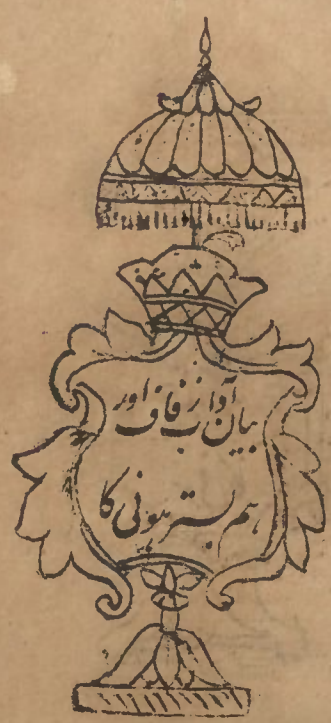 بیان آداب زفاف اور
ہم بستر ہونی کا